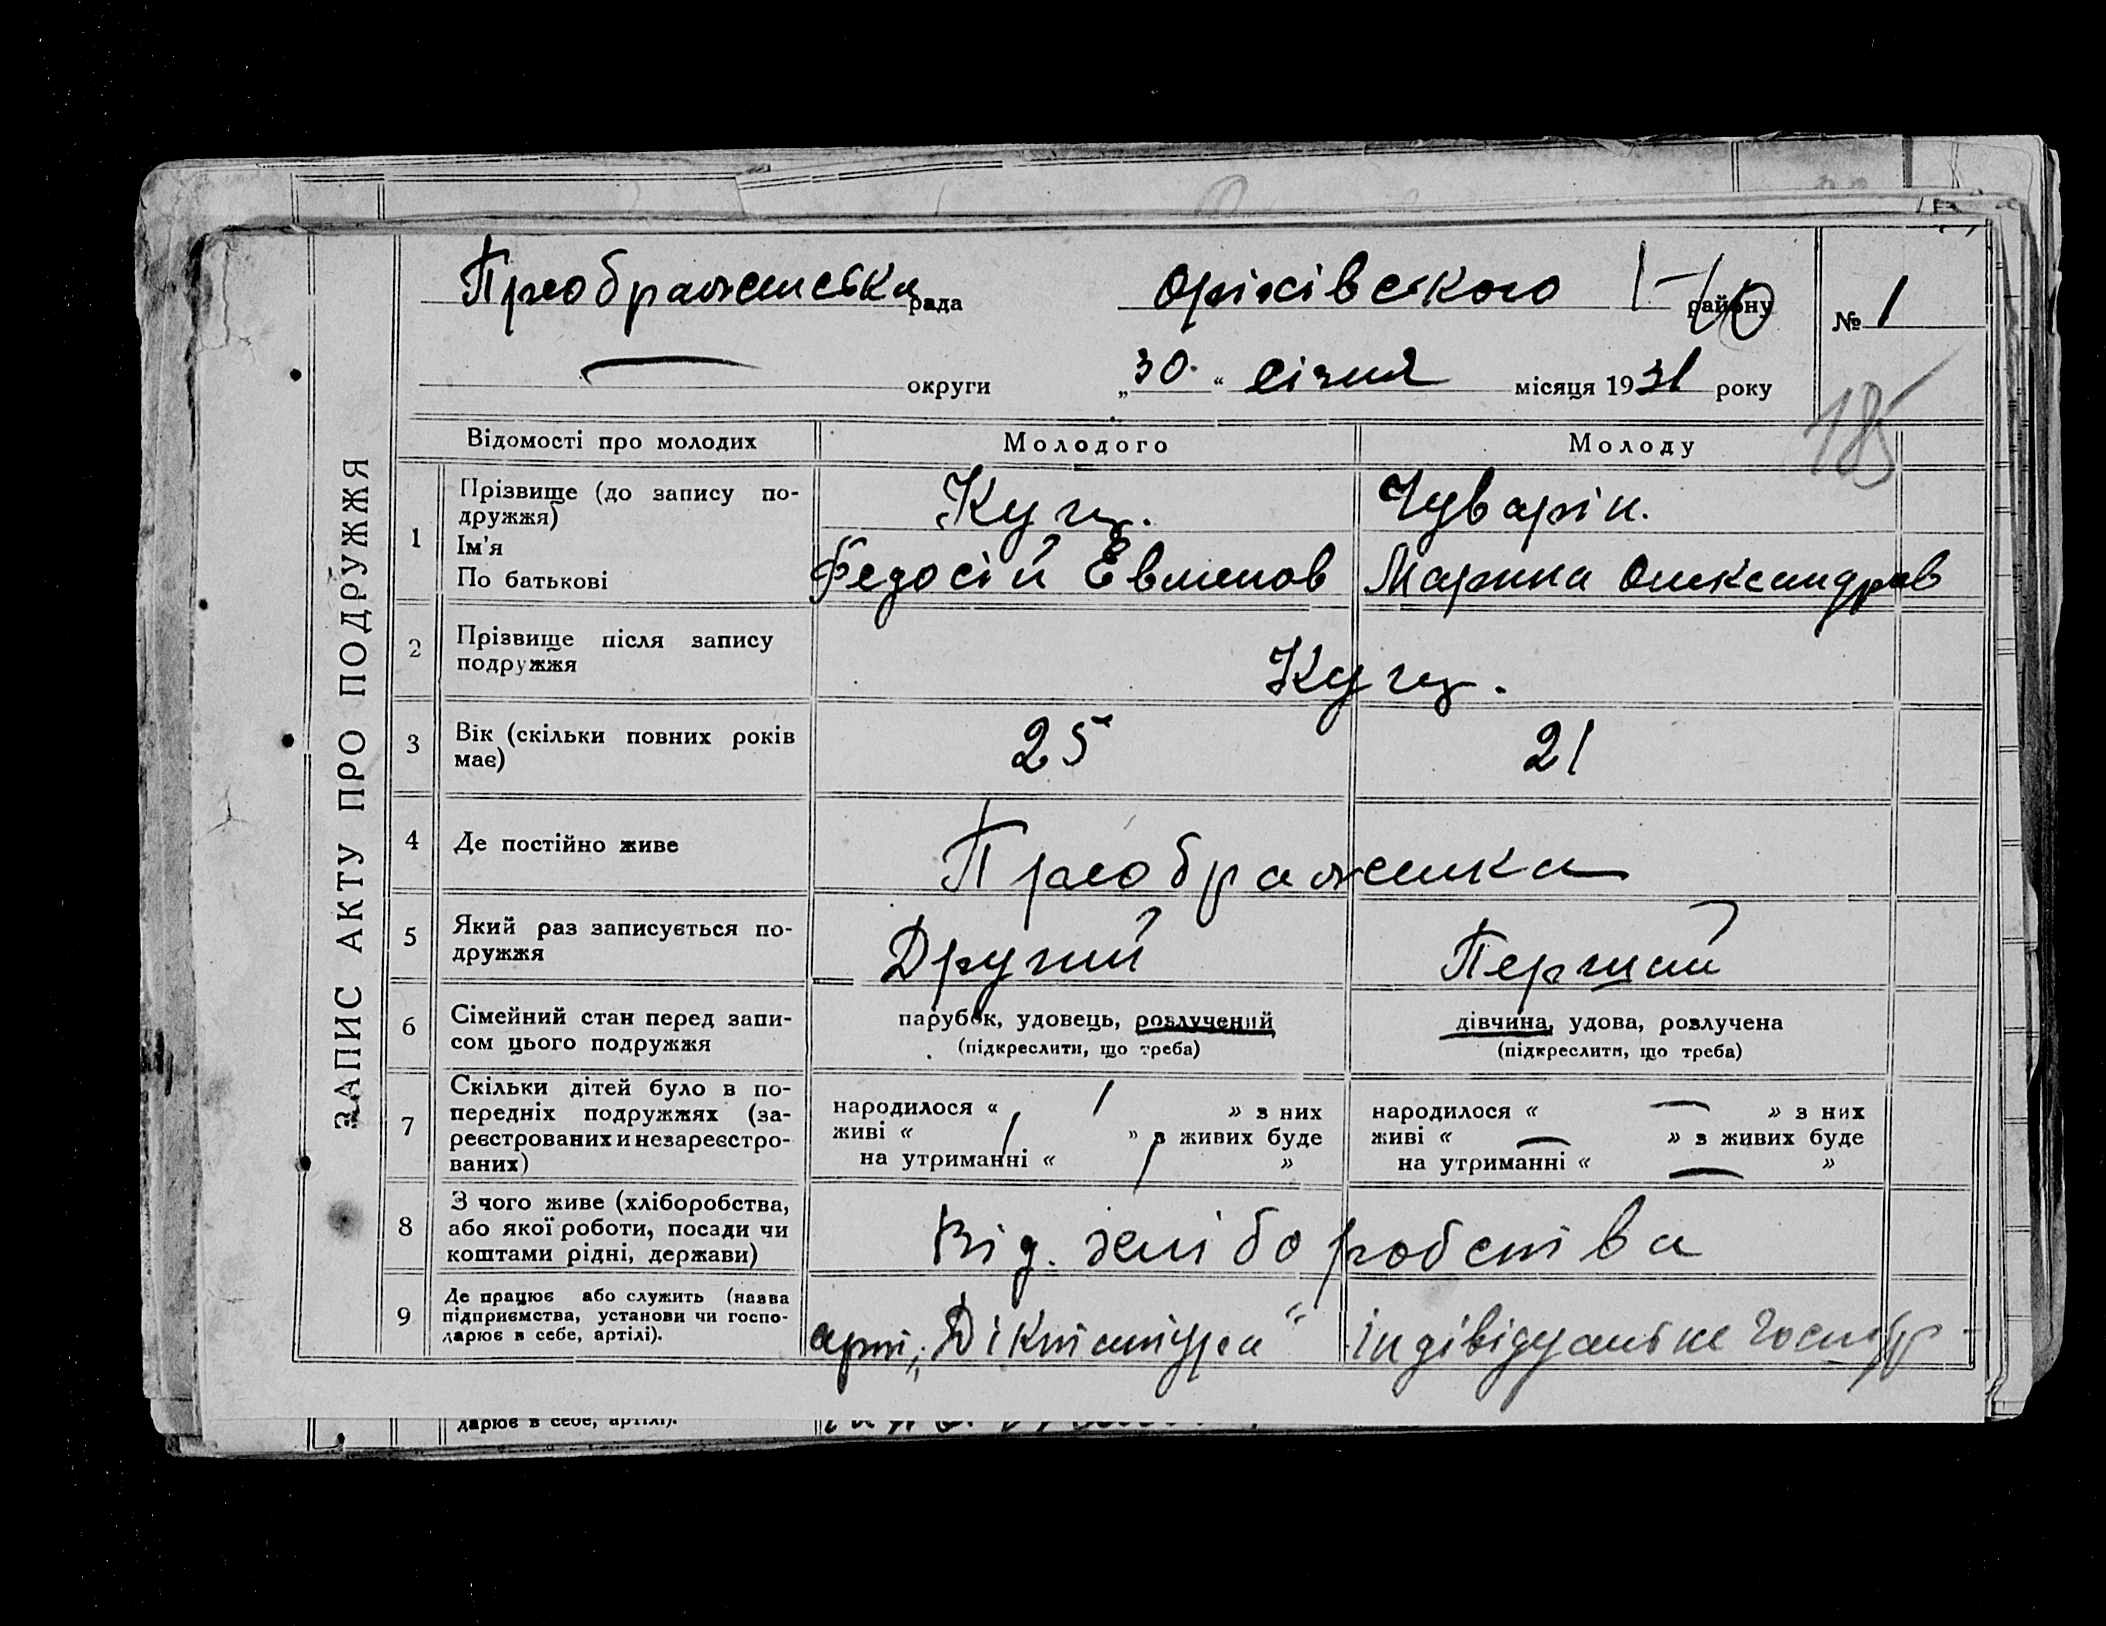 Преображенська рада Оріхівського району 1-10 № 1
округи „30.“ січня місяця 1931 року
185
ЗАПИС АКТУ ПРО ПОДРУЖЖЯ
Відомості про молодих Молодого Молоду
1 Прізвище (до запису по-
дружжя) Куц. Чуварін.
Ім'я
По батькові Федосій Евменов Марина Олександров
2 Прізвище після запису
подружжя Куц.
3 Вік (скільки повних років
має) 25 21
4 Де постійно живе Преображенка
5 Який раз записується по-
дружжя Другий Перший
6 Сімейний стан перед запи-
сом цього подружжя
парубок, удовець, розлучений дівчина, удова, розлучена
(підкреслити, що треба) (підкреслити, що треба)
7 Скільки дітей було в по-
передніх подружжях (за-
реєстрованих и незареєстро-
ваних)
народилося « 1 » з них народилося « — » з них
живі « 1 » з живих буде живі « — » з живих буде
на утриманні « 1 » на утриманні « — »
8 З чого живе (хліборобства,
або якої роботи, посади чи
коштами рідні, держави) Від. хліборобства
9 Де працює або служить (назва
підприємства, установи чи госпо-
дарює в себе, артілі).
арт. „Діктатура“ індівідуальне господар-
дарює в себе, артілі).